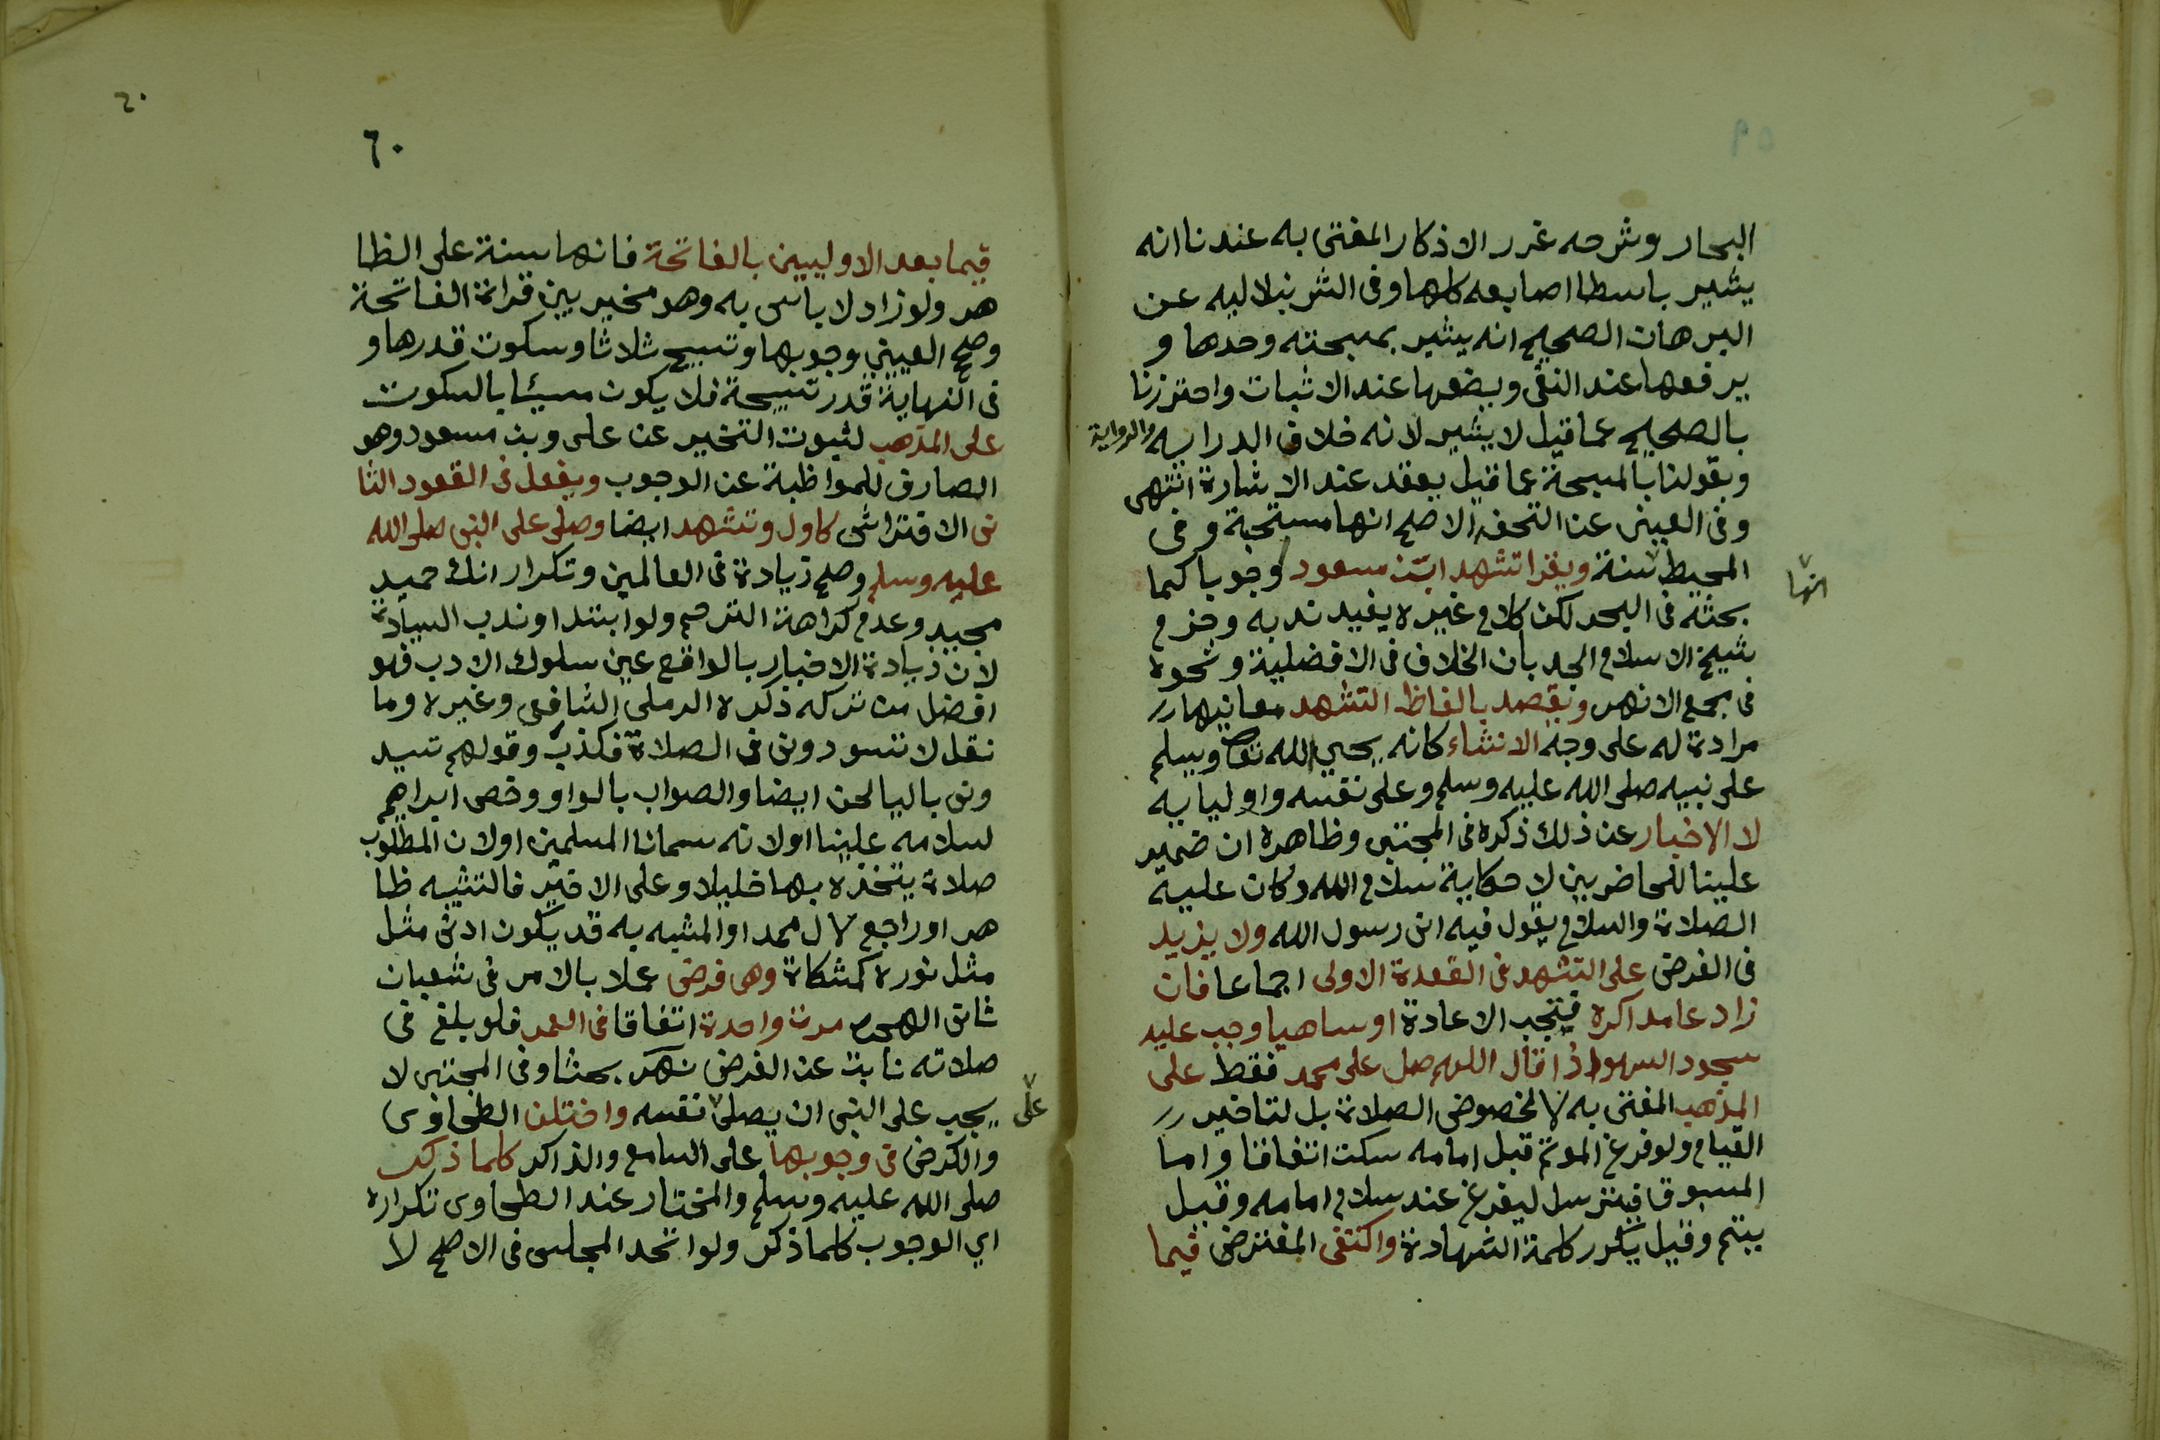 ٥٩
البحار وشرحه غرر الاذكار المفتى به عندنا انه
يشير باسطا اصابعه كلها وفى الشرنبلاليه عن
البرهان الصحيح انه يشير بمسبحته وحدها و
يرفعها عند النفى ويضعها عند الاثبات واحترزنا
بالصحيح عما قيل لا يشير لانه خلاف الدرايه والرواية
وبقولنا بالمسبحة عما قيل يعقد عند الاشارة انتهى
وفى العينى عن التحفه الاصح انها مستحبة وفى
المحيط سنة ويقرا تشهد ابن مسعود وجوبا كما
انها
بحثه فى البحر لكن كلام غيره يفيد ندبه وجزم
شيخ الاسلام الجد بان الخلاف فى الافضلية ونحوه
فى مجمع الانهر ويقصد بالفاظ التشهد معانيها
مرادة له على وجه الانشاء كانه يحيي الله تعا ويسلم
على نبيه صلى الله عليه وسلم وعلى نفسه واوليايه
لا الاخبار عن ذلك ذكره فى المجتبى وظاهره ان ضمير
علينا للحاضرين لا حكاية سلام الله وكان عليه
الصلاة والسلام يقول فيه انى رسول الله ولا يزيد
فى الفرض على التشهد فى القعدة الاولى اجماعا فان
زاد عامدا كره فتجب الاعادة او ساهيا وجب عليه
سجود السهو اذا قال اللهم صل على محمد فقط على
المذهب المفتى به لا لخصوص الصلاة بل لتاخير
القيام ولو فرغ الموتم قبل امامه سكت اتفاقا واما
المسبوق فيترسل ليفرغ عند سلام امامه وقيل
يتم وقيل يكرر كلمة الشهادة واكتفى المفترض فيما
٦٠
٦٠
فيما بعد الاوليين بالفاتحة فانها سنة على الظا
هر ولو زاد لا باس به وهو مخير بين قراة الفاتحة
وصح العينى وجوبها وتسبيح ثلاثا وسكوت قدرها و
فى النهاية قدر تسبيحة فلا يكون مسيئا بالسكوت
على المذهب لثبوت التخير عن على وبن مسعود وهو
الصارف للمواظبة عن الوجوب ويفعل فى القعود الثا
نى الافتراش كاول وتشهد ايضا وصلى على النبى صلى الله
عليه وسلم وصح زيادة فى العالمين وتكرار انك حميد
مجيد وعدم كراهة الترحم ولو ابتدا وندب السيادة
لان زيادة الاخبار بالواقع عين سلوك الادب فهو
افضل من تركه ذكره الرملى الشافعى وغيره وما
نقل لا تسودونى فى الصلاة فكذب وقولهم تسيد
ونى باليا لحن ايضا والصواب بالواو وخص ابراهيم
لسلامه علينا او لانه سمانا المسلمين او لان المطلوب
صلاة يتخذه بها خليلا وعلى الاخير فالتشبيه ظا
هر او راجع لال محمد او المشبه به قد يكون ادنى مثل
مثل نوره كمشكاة وهى فرض عملا بالامر فى شعبان
ثانى الهجره مرة واحدة اتفاقا فى العمر فلو بلغ فى
صلاته نابت عن الفرض نهر بحثا وفى المجتبى لا
يجب على النبى ان يصلى نفسه واختلف الطحاوى
على
والكرخى فى وجوبها على السامع والذاكر كلما ذكر
صلى الله عليه وسلم والمختار عند الطحاوى تكراره
اي الوجوب كلما ذكر ولو اتحد المجلس فى الاصح لا